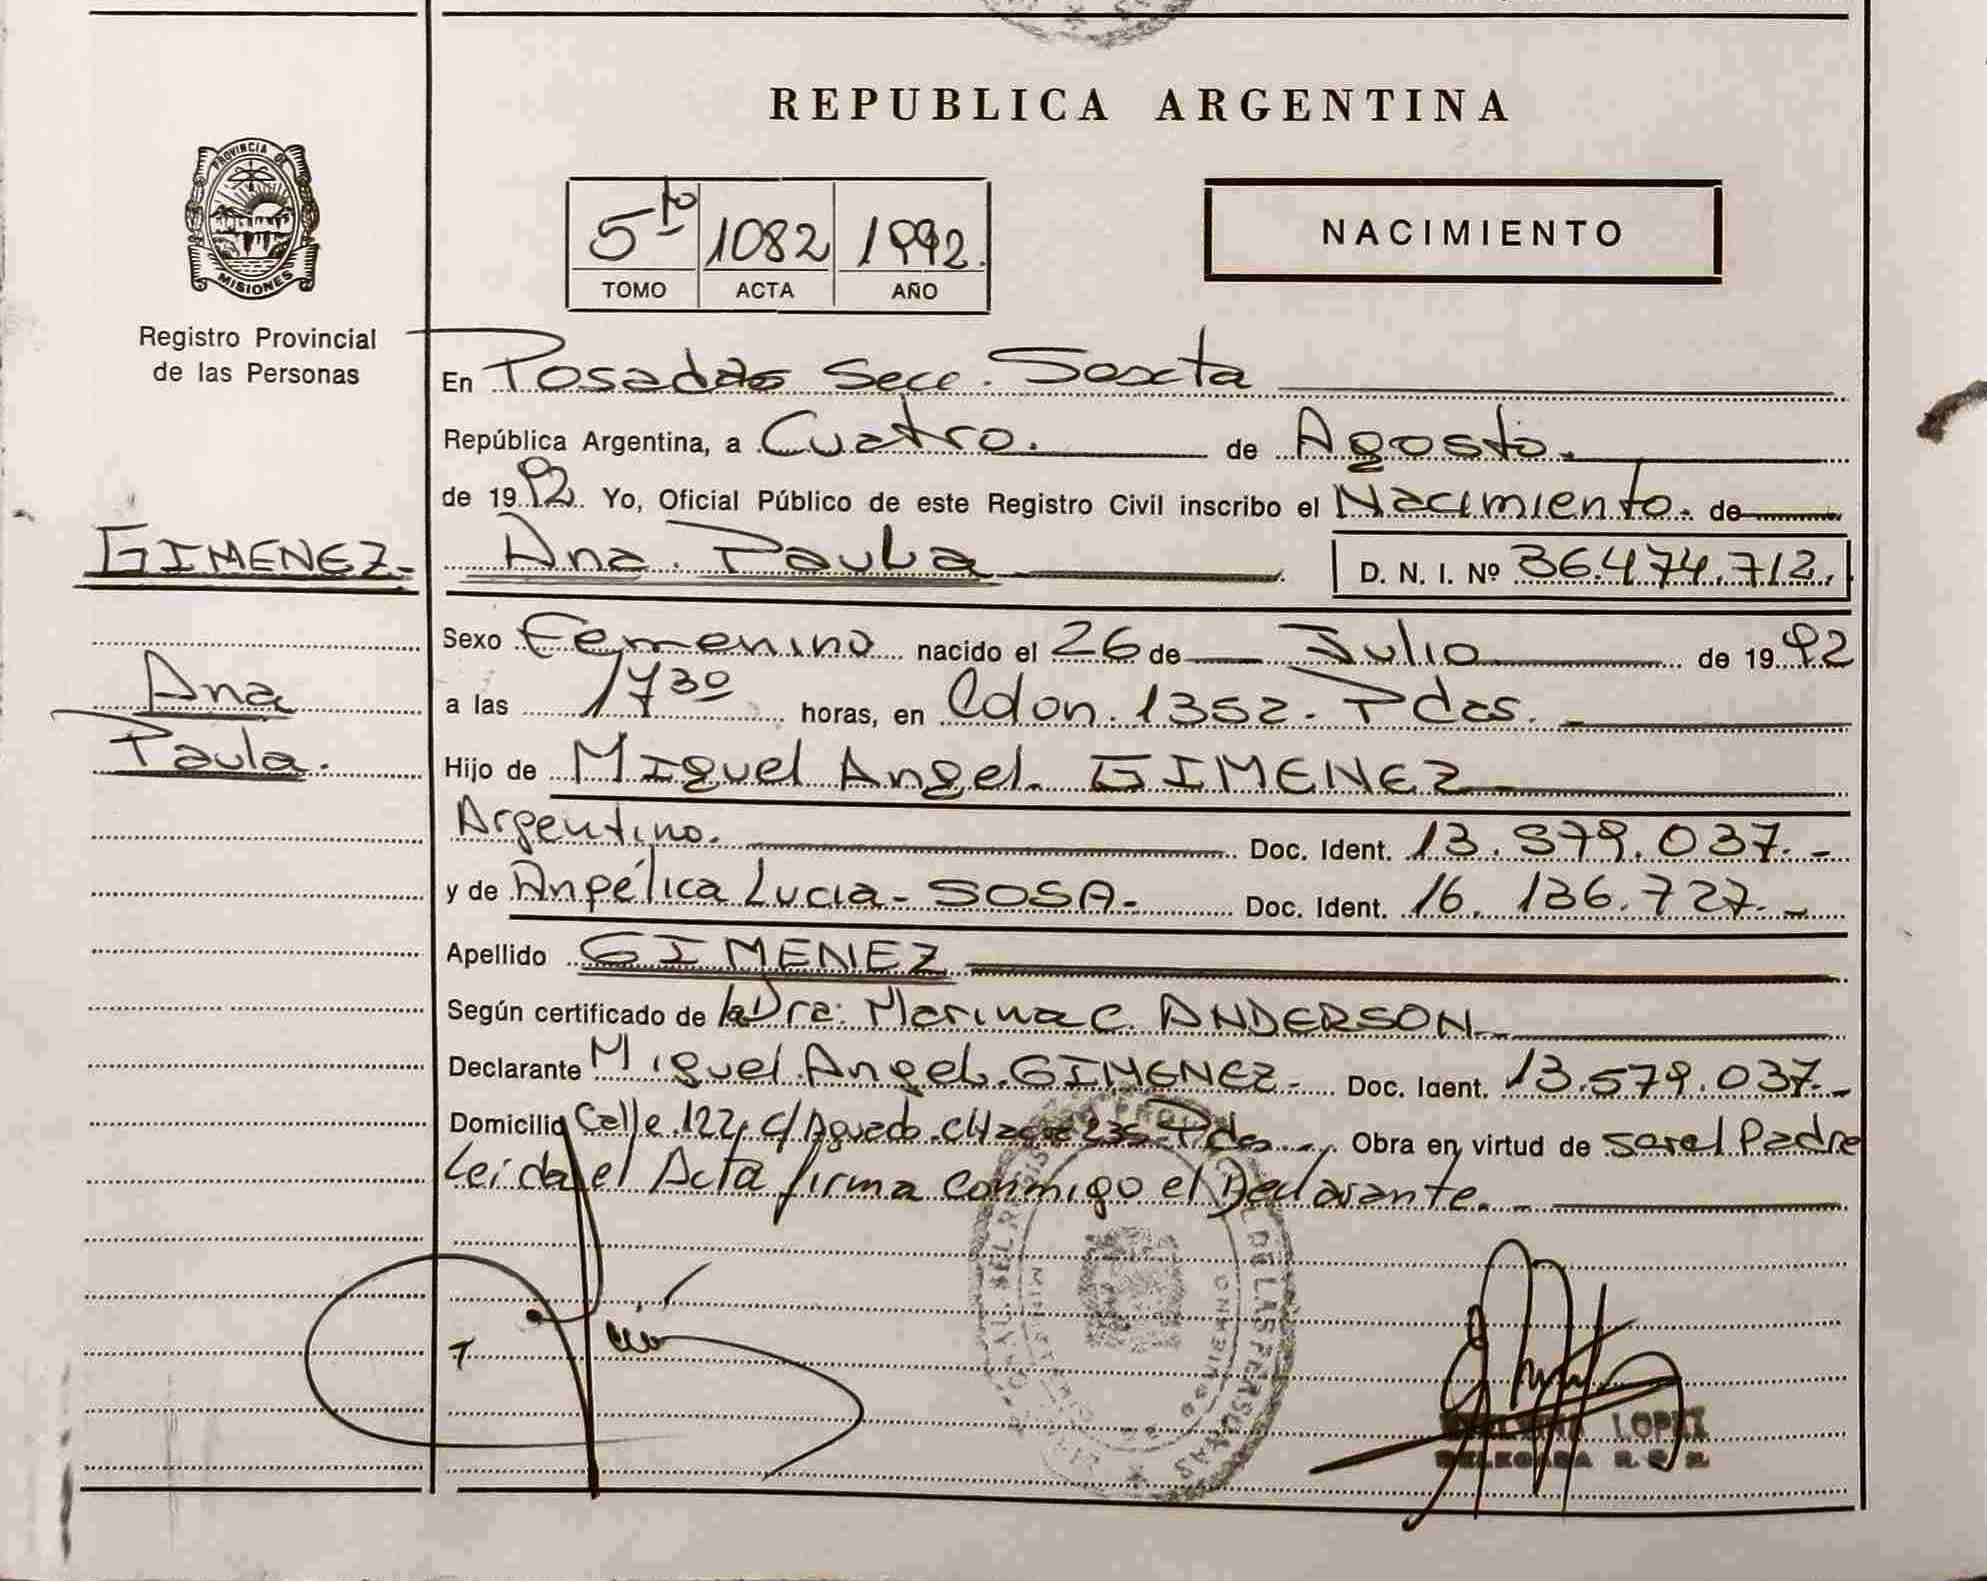 REPUBLICA ARGENTINA
PROVINCIA DE
MISIONES
Registro Provincial
de las Personas
5to 1082 1992.
TOMO ACTA AÑO
NACIMIENTO
En Posadas Secc. Sexta
República Argentina, a Cuatro. de Agosto.
de 1992. Yo, Oficial Público de este Registro Civil inscribo el Nacimiento. de
GIMENEZ-
Ana
Paula.
Ana. Paula D. N. I. Nº 36.474.712.
Sexo Femenino nacido el 26 de Julio de 1992
a las 1730 horas, en Colon. 1352. Pdas.
Hijo de Miguel Angel. GIMENEZ
Argentino. Doc. Ident. 13.579.037.-
y de Angélica Lucia- SOSA- Doc. Ident. 16.136.727.-
Apellido GIMENEZ
Según certificado de la Dra: Marina C. ANDERSON
Declarante Miguel Angel. GIMENEZ- Doc. Ident. 13.579.037.-
Domicilio Calle 122, c/Aguado Pdas Obra en virtud de ser el Padre
Leída el Acta firma conmigo el Declarante.-
DE LAS PERSONAS
LOPEZ
DELEGADA R.P.P.